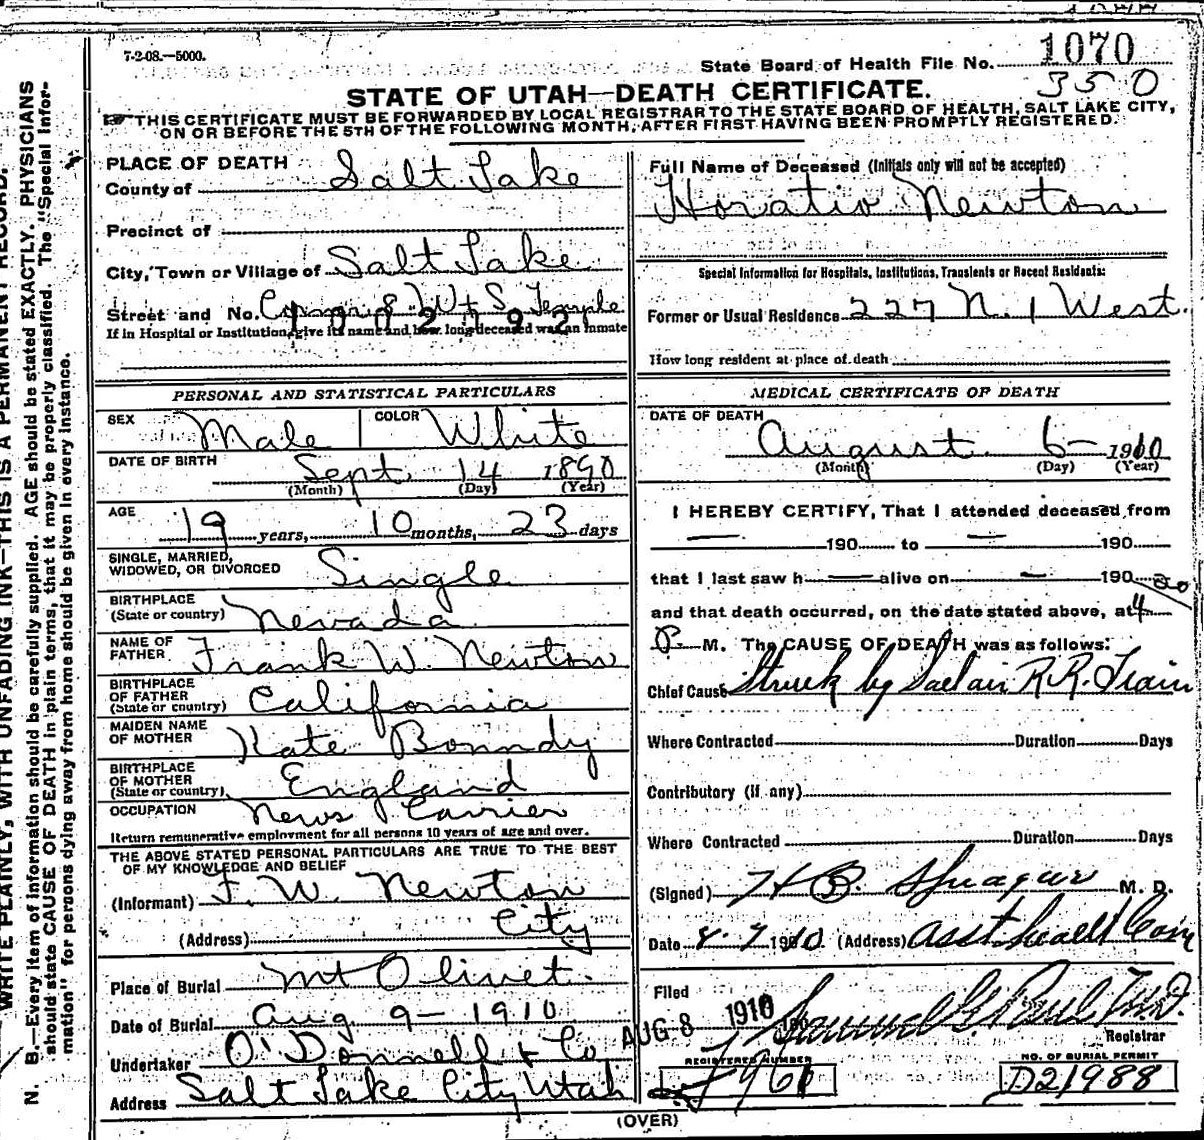 7-2-08.—5000.
State Board of Health File No. 1070
350
STATE OF UTAH—DEATH CERTIFICATE.
THIS CERTIFICATE MUST BE FORWARDED BY LOCAL REGISTRAR TO THE STATE BOARD OF HEALTH, SALT LAKE CITY,
ON OR BEFORE THE 5TH OF THE FOLLOWING MONTH, AFTER FIRST HAVING BEEN PROMPTLY REGISTERED.
WRITE PLAINLY, WITH UNFADING INK—THIS IS A PERMANENT RECORD.
N. B.—Every item of information should be carefully supplied. AGE should be stated EXACTLY. PHYSICIANS
should state CAUSE OF DEATH in plain terms, that it may be properly classified. The "Special Infor-
mation" for persons dying away from home should be given in every instance.
PLACE OF DEATH
County of Salt Lake
Precinct of
City, Town or Village of Salt Lake
Street and No. 8 W + S. Temple
If in Hospital or Institution, give its name and how long deceased was an inmate
PERSONAL AND STATISTICAL PARTICULARS
SEX Male COLOR White
DATE OF BIRTH Sept 14 1890
(Month) (Day) (Year)
AGE 19 years, 10 months, 23 days
SINGLE, MARRIED,
WIDOWED, OR DIVORCED Single
BIRTHPLACE
(State or country) Nevada
NAME OF
FATHER Frank W. Newton
BIRTHPLACE
OF FATHER
(State or country) California
MAIDEN NAME
OF MOTHER Kate Bonndy
BIRTHPLACE
OF MOTHER
(State or country) England
OCCUPATION News Carrier
Return remunerative employment for all persons 10 years of age and over.
THE ABOVE STATED PERSONAL PARTICULARS ARE TRUE TO THE BEST
OF MY KNOWLEDGE AND BELIEF
(Informant) F. W. Newton
(Address) City
Place of Burial Mt Olivet.
Date of Burial Aug 9 - 1910
Undertaker O'Donnell & Co
Address Salt Lake City Utah
Full Name of Deceased (Initials only will not be accepted)
Horatio Newton
Special Information for Hospitals, Institutions, Transients or Recent Residents:
Former or Usual Residence 227 N. 1 West.
How long resident at place of death
MEDICAL CERTIFICATE OF DEATH
DATE OF DEATH
August 6- 1910
(Month) (Day) (Year)
I HEREBY CERTIFY, That I attended deceased from
— 190 to — 190
that I last saw h — alive on — 190
and that death occurred, on the date stated above, at 4
P. M. The CAUSE OF DEATH was as follows:
Chief Cause Struck by Saltair R.R. Train
Where Contracted Duration Days
Contributory (if any)
Where Contracted Duration Days
(Signed) H B. Sprague M. D.
Date 8-7 1910 (Address) Asst Health Com
Filed AUG 8 1910 Samuel G. Paul M.D.
Registrar
REGISTERED NUMBER
NO. OF BURIAL PERMIT
D21988
(OVER)